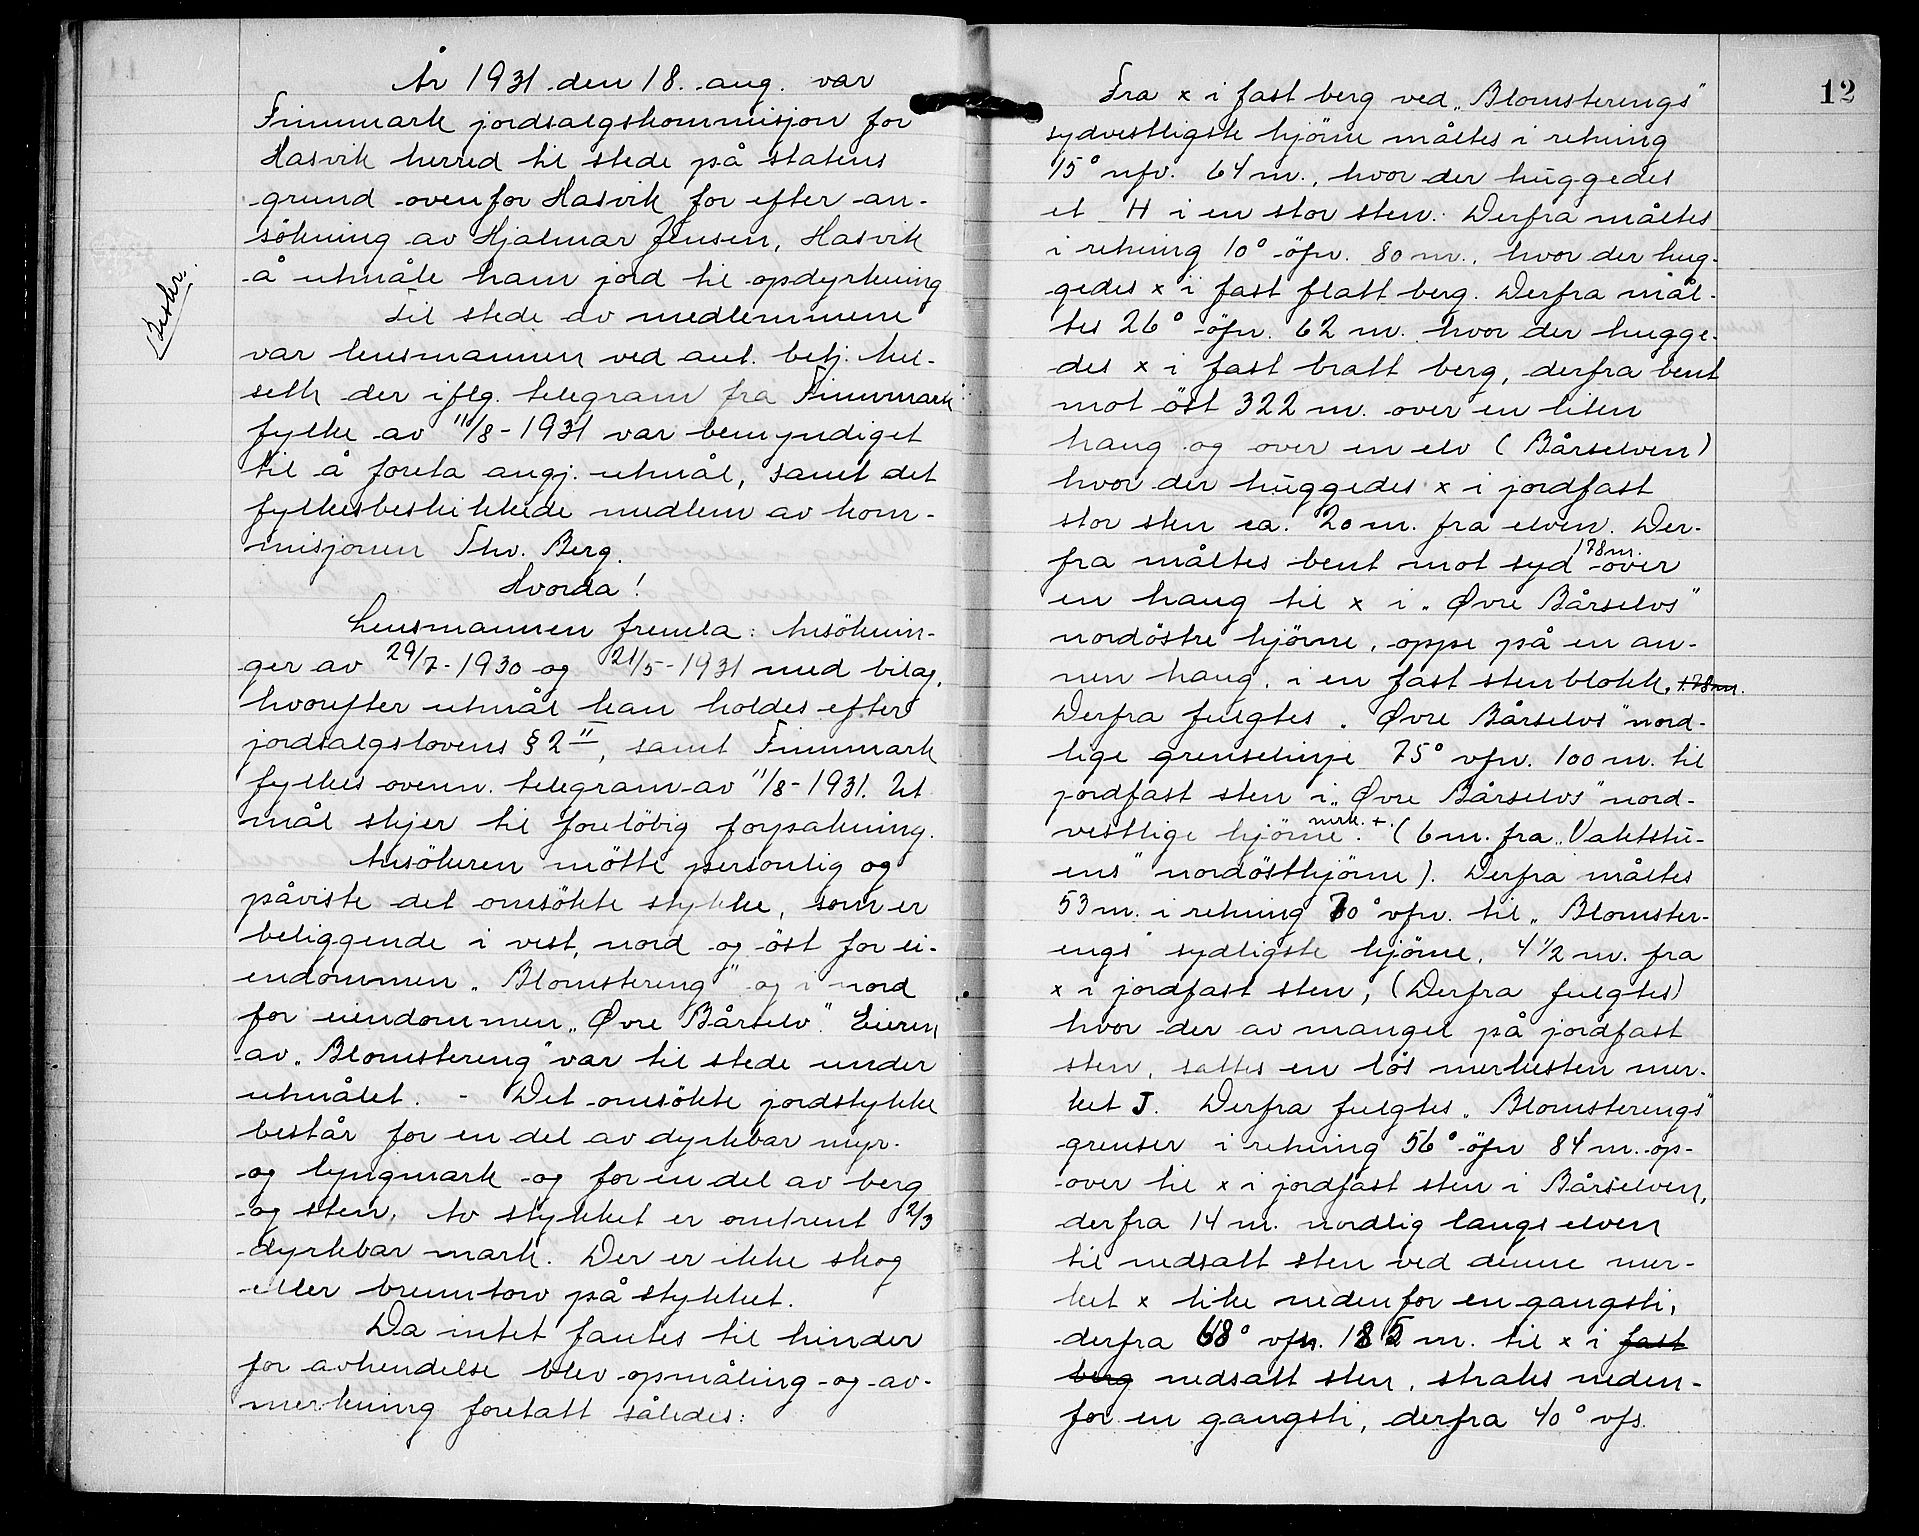 År 1931 den 18. aug. var
Finnmark jordsalgskommisjon for
Hasvik herred til stede på statens
grund ovenfor Hasvik for efter an-
sökning av Hjalmar Jensen, Hasvik
å utmåle ham jord til opdyrkning
Til stede av medlemmene
var lensmannen ved aut. betj. Hel-
seth der iflg. telegram fra Finnmark
fylke av 11/8-1931 var bemyndiget
til å foreta angj. utmål, samt det
fylkesbeskikkede medlem av kom-
misjonen Thv. Berg.
Hvorda!
Lensmannen fremla: Ansöknin-
ger av 29/7-1930 og 21/5-1931 med bilag,
hvorefter utmål kan holdes efter
jordsalgslovens § 2 II, samt Finnmark
fylkes ovenn. telegram av 11/8-1931. Ut
mål skjer til foreløbig forpaktning.
Ansökeren mötte personlig og
påviste det omsökte stykke, som er
beliggende i vest, nord og öst for ei-
endommen „Blomstereng" og i nord
for eiendommen „Øvre Bårselv". Eieren
av „Blomstereng" var til stede under
utmålet. - Det omsökte jordstykke
består for en del av dyrkbar myr-
og lyngmark og for en del av berg
og sten. Av stykket er omtrent 2/3
dyrkbar mark. Der er ikke skog
eller brenntorv på stykket.
Da intet fantes til hinder
for avhendelse blev opmåling og av-
merkning foretatt således:
12
Fra x i fast berg ved „Blomsterengs"
sydvestligste hjörne måltes i retning
15° nfv. 64 m., hvor der huggedes
et H i en stor sten. Derfra måltes
i retning 10° öfn. 80 m., hvor der hug-
gedes x i fast flatt berg. Derfra mål-
tes 26° öfn. 62 m. hvor der hugge-
des x i fast bratt berg, derfra bent
mot öst 322 m. over en liten
haug og over en elv (Bårselven)
hvor der huggedes x i jordfast
stor sten ca. 20 m. fra elven. Der-
fra måltes bent mot syd 178 m. over
en haug til x i „Øvre Bårselvs"
nordöstre hjörne, oppe på en an-
nen haug, i en fast stenblokk, 178 m.
Derfra fulgtes „Øvre Bårselvs" nord-
lige grenselinje 75° vfn. 100 m. til
jordfast sten i „Øvre Bårselvs" nord-
vestlige hjörne mrk. +. (6 m. fra „Vaktstu-
ens" nordösthjörne). Derfra måltes
53 m. i retning 70° vfn. til „Blomster-
engs" sydligste hjörne, 4 1/2 m. fra
x i jordfast sten, (Derfra fulgtes)
hvor der av mangel på jordfast
sten, sattes en lös merkesten mer-
ket J. Derfra fulgtes „Blomsterengs"
grenser i retning 56° öfn 84 m. op-
over til x i jordfast sten i Bårselven,
derfra 14 m. nordlig langs elven
til nedsatt sten ved denne mer-
ket x like nedenfor en gangsti,
derfra 68° vfn. 185 m. til x i fast
berg nedsatt sten, straks neden-
for en gangsti, derfra 40° vfs.